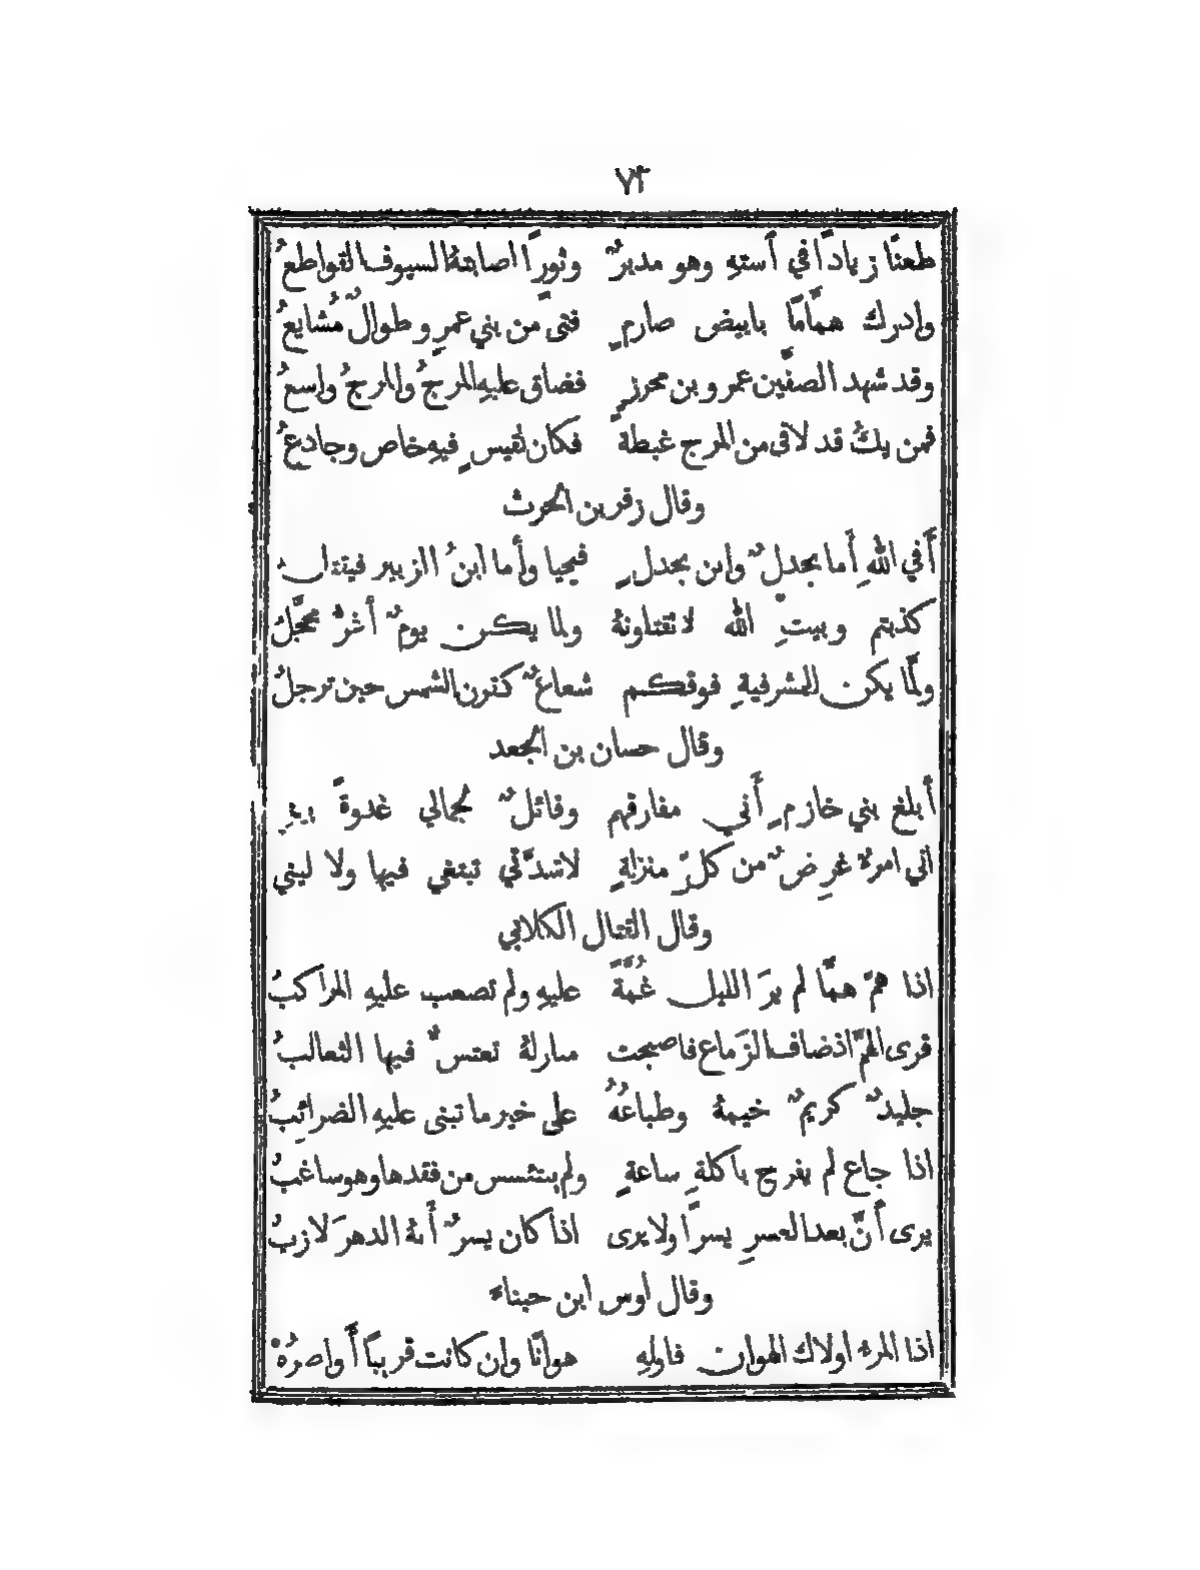 ٧٣
طعنّا زياداً في أَستهِ وهو مدبرٌ وثوراً اصابتهُ السيوف القواطعُ
وادرك همَّاماً بابيض صارمٍ فتىً من بني عمرٍو طوالٌ مُشايعُ
وقد شهد الصفَّين عمرو بن محرزٍ فضاق عليهِ المرجُ والمرجُ واسعُ
فمن يكُ قد لاقى من المرج غبطةً فكان لقيسٍ فيهِ خاصٍ وجادعُ
وقال زفر بن الحرث
أَفي اللهِ أَما بجدلٌ وابن بجدلٍ فيحيا وأَما ابنُ الزبير فيقتلُ
كذبتم وبيتِ الله لا تقتلونهُ ولما يكن يومٌ أَغرُّ محجَّلُ
ولمَّا يكن للمشرفيةِ فوقكم شعاعٌ كقرن الشمس حين ترجلُ
وقال حسان بن الجعد
أَبلغ بني خازمٍ أَني مفارقهم وقائلٌ لجمالي غدوةً بيني
اني امرءٌ غرضٌ من كلّ منزلةٍ لا شدَّتي تبتغي فيها ولا ليني
وقال القتال الكلابي
اذا همَّ همَّاً لم يرَ الليل غُمَّةً عليهِ ولم تصعب عليهِ المراكبُ
قرى الهمَّ اذ ضاف الزَماع فاصبحت منازلهُ تعتسُّ فيها الثعالبُ
جليدٌ كريمٌ خيمهُ وطباعُهُ على خير ما تبنى عليهِ الضرائبُ
اذا جاع لم يفرح باكلةِ ساعةٍ ولم يبتئس من فقدها وهو ساغبُ
يرى أَنَّ بعد العسرِ يسراً ولا يرى اذا كان يسرٌ أَنهُ الدهرَ لازبُ
وقال اوس ابن حبناء
اذا المرء اولاك الهوان فاولهِ هواناً وان كانت قريباً أَواصرُهْ